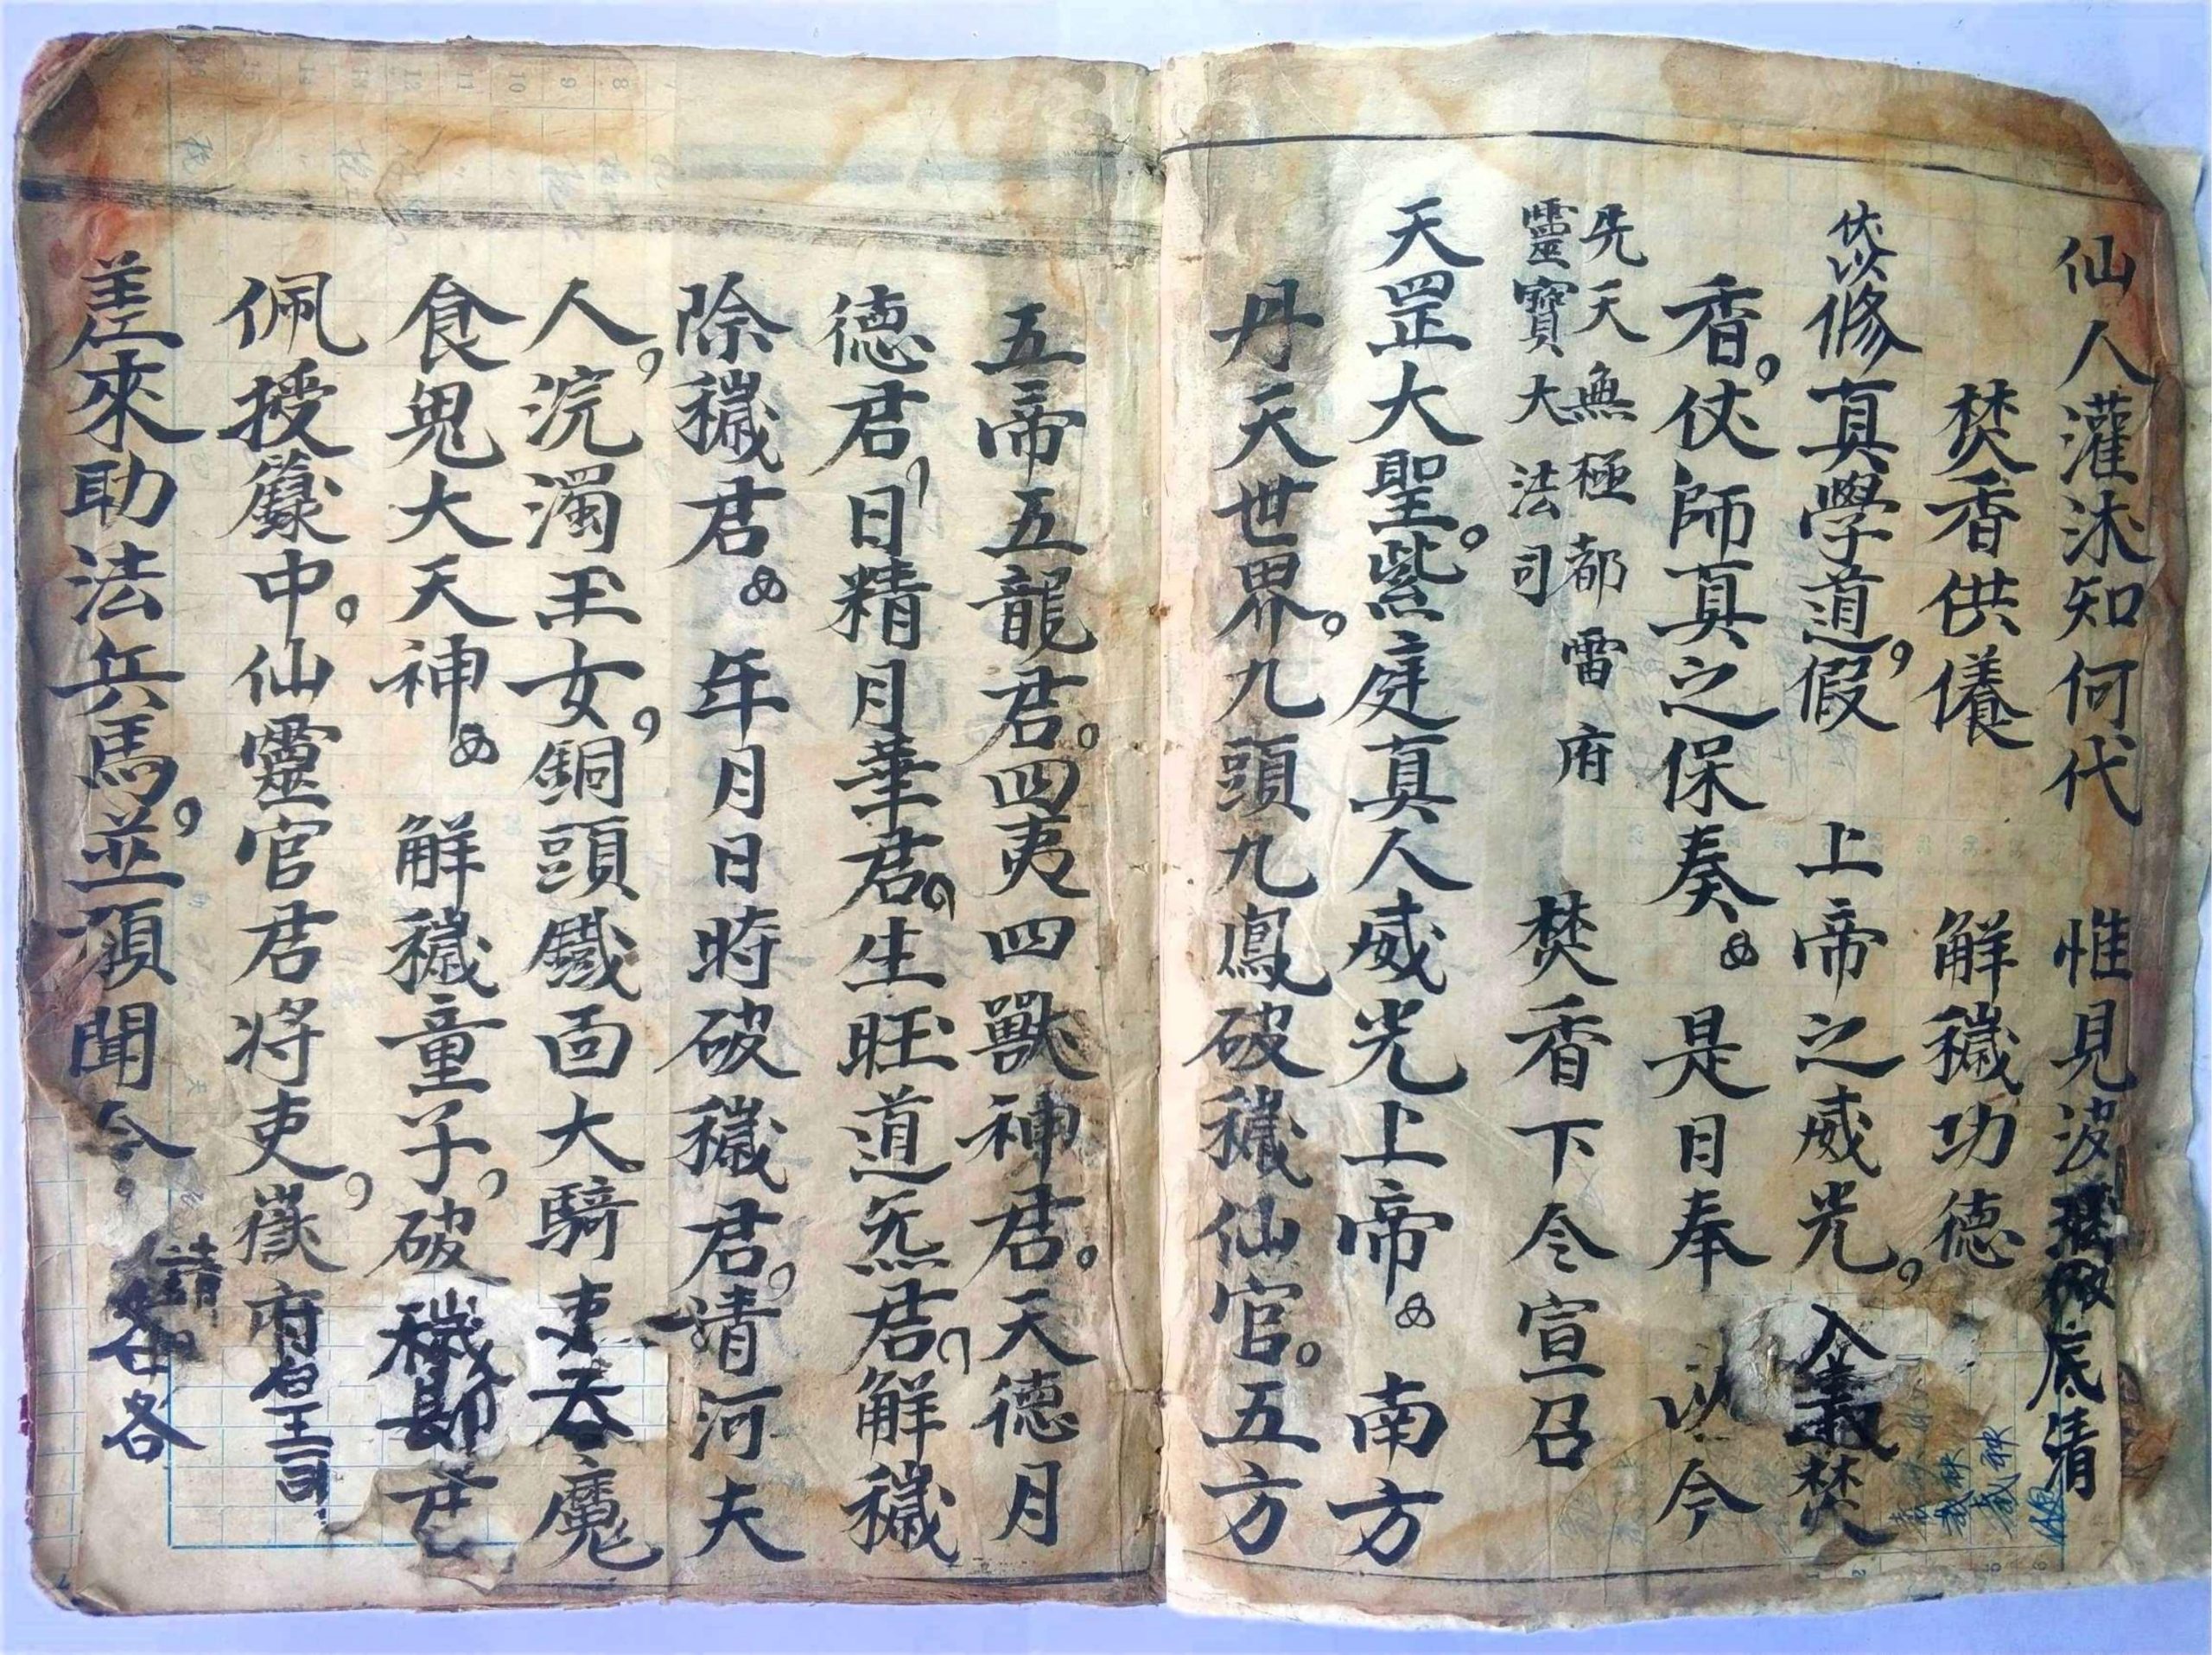 仙人灌沐知何代 惟見波 底清
焚香供養 解穢功德
伏以修真學道，假 上帝之威光。入 焚
香，仗師真之保奏。是日奉 以今
先天無極都雷府
靈寶大法司 焚香下令宣召
天罡大聖。紫庭真人威光上帝。南方
丹天世界。九頭九鳳破穢仙官。五方
五帝五龍君。四夷四獸神君。天德月
德君，日精月華君，生旺道炁君，解穢
除穢君。年月日時破穢君，清河夫
人，浣濁玉女，銅頭鐵面大騎吏吞魔
食鬼大天神。解穢童子，破穢
佩授籙中。仙靈官君将吏，嶽府
差來助法兵馬，並須聞令 請 各